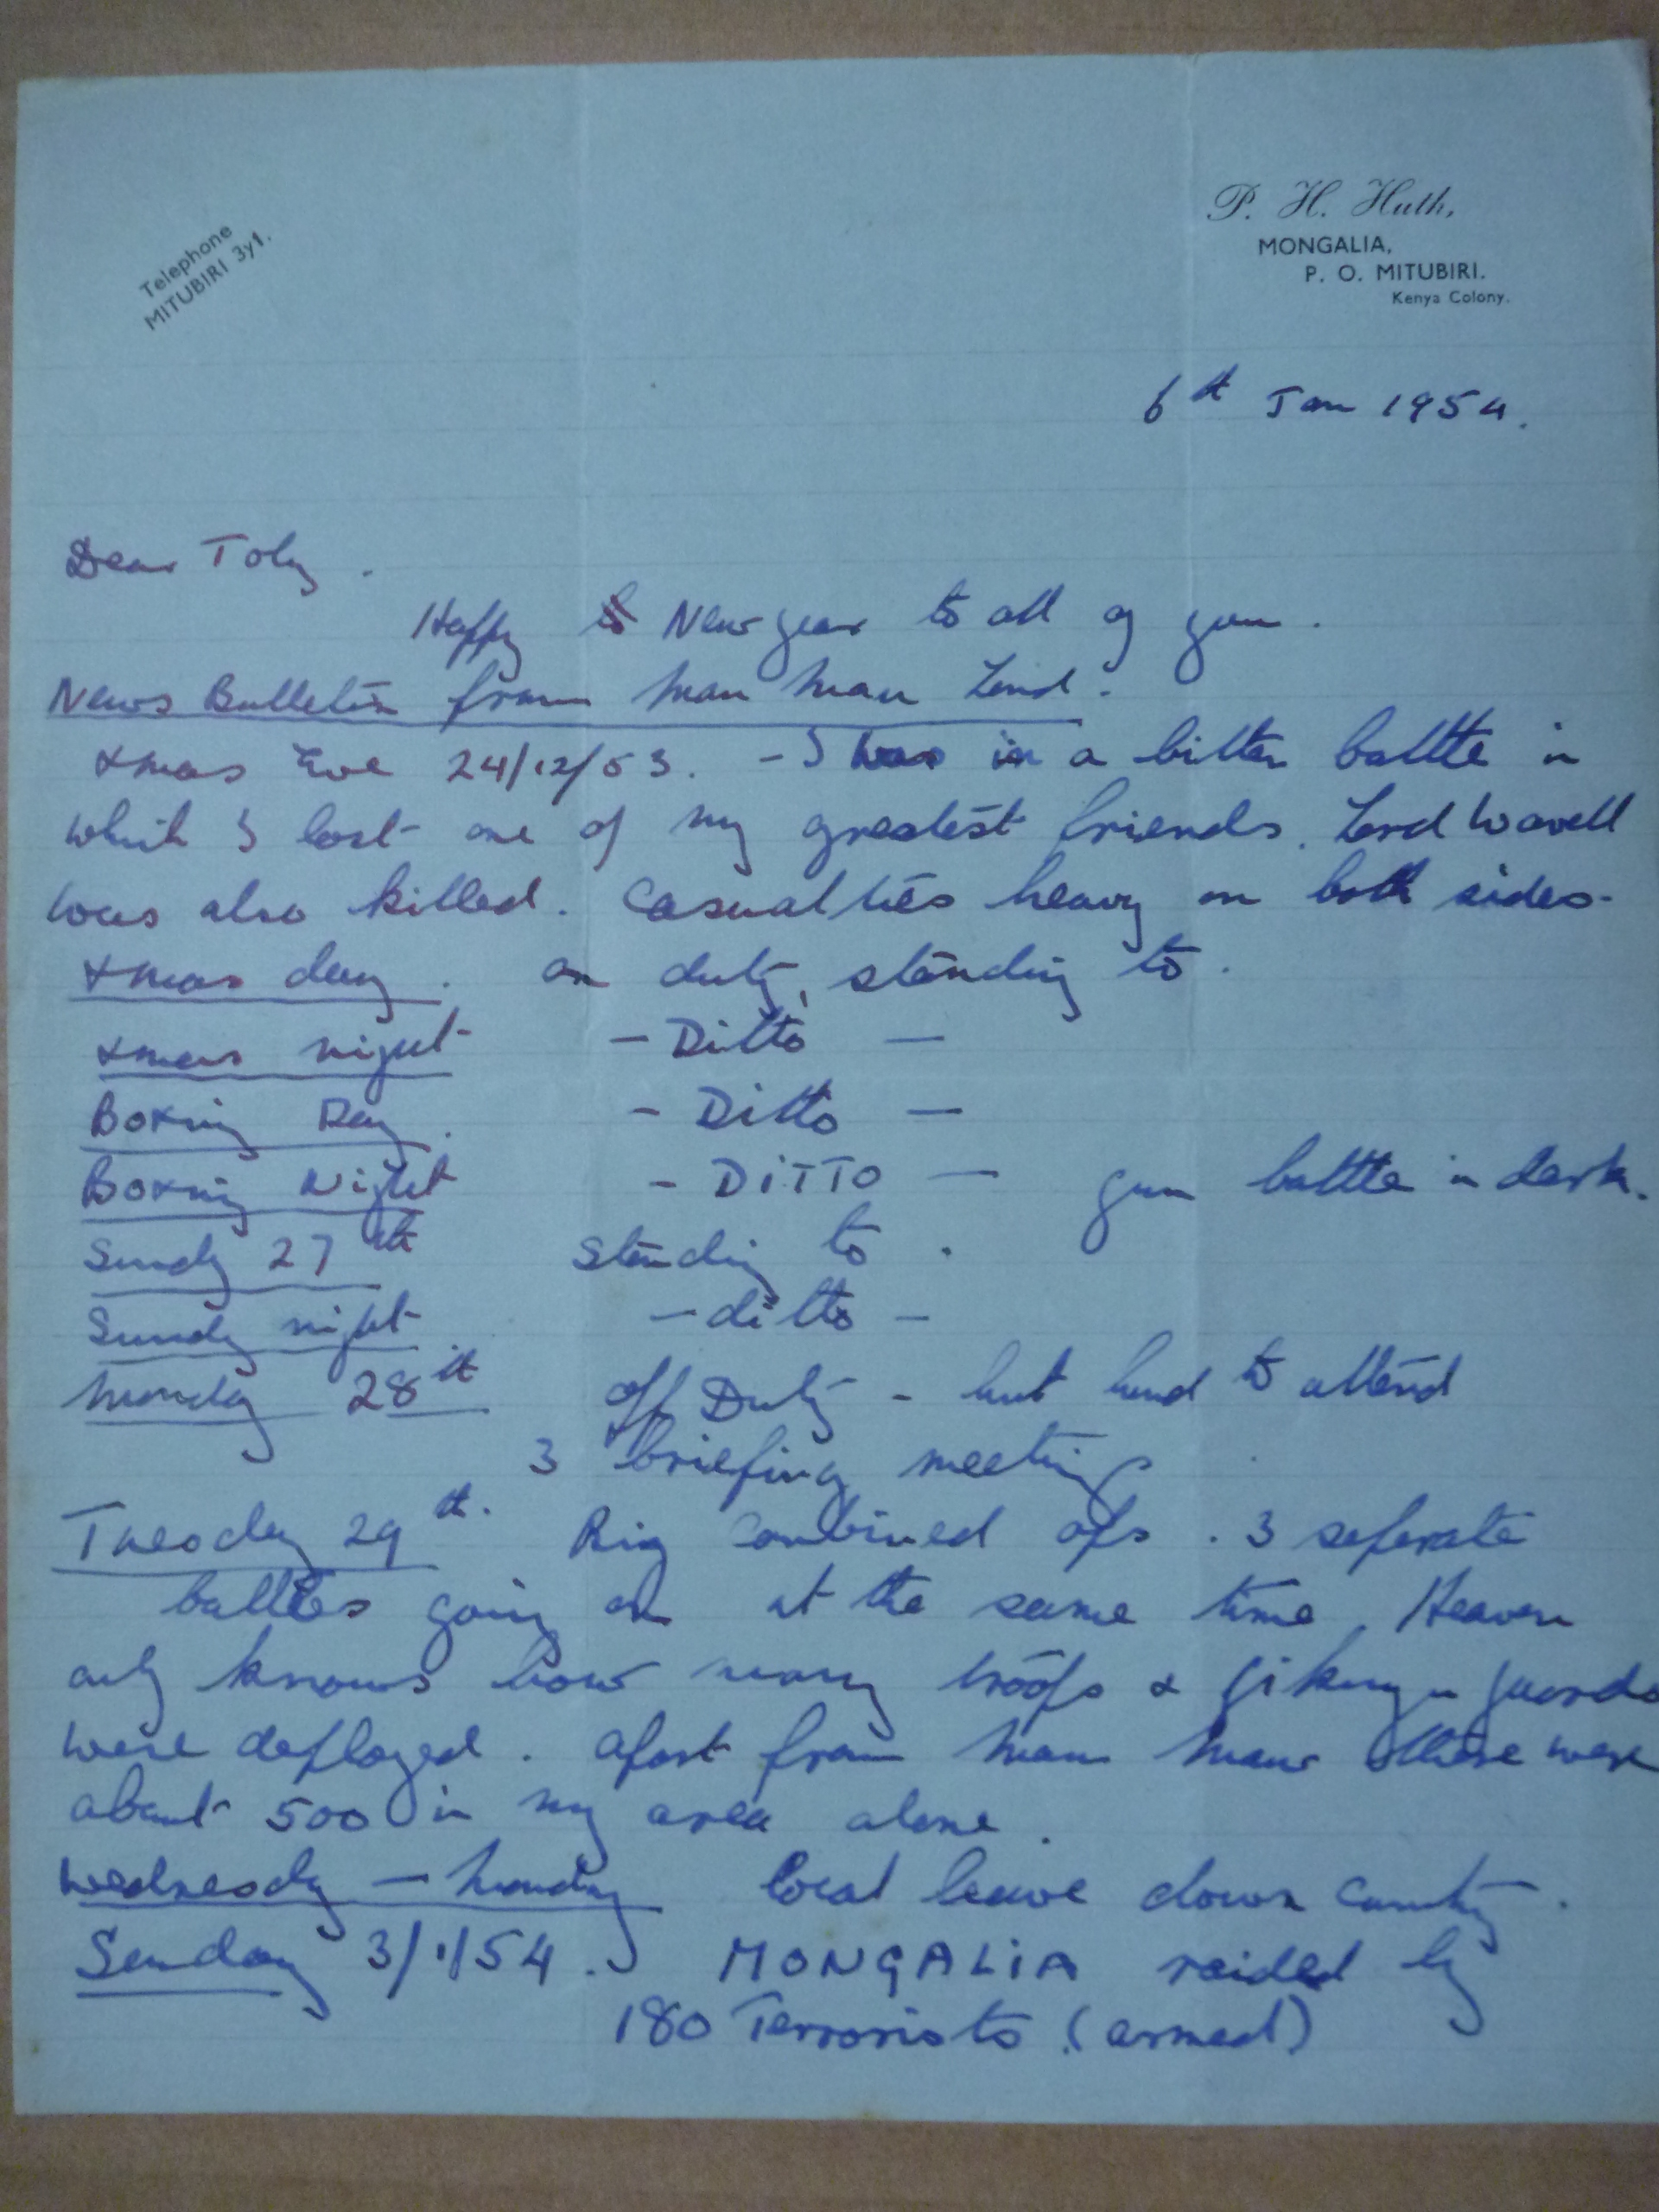 Telephone
MITUBIRI 3y1.
P. H. Huth,
MONGALIA,
P. O. MITUBIRI.
Kenya Colony.
6th Jan 1954.
Dear Toby.
Happy New year to all of you.
News Bulletin from Mau Mau Land.
Xmas Eve 24/12/53. - I was in a bitter battle in
which I lost one of my greatest friends. Lord Wavell
was also killed. Casualties heavy on both sides.
Xmas day. on duty, standing to.
Xmas night - Ditto -
Boxing Day. - Ditto -
Boxing Night - DITTO - gun battle in dark.
Sunday 27th Standing to.
Sunday night - ditto -
Monday 28th Off Duty - but had to attend
3 briefing meetings
Tuesday 29th. Big combined ops. 3 seperate
battles going on at the same time. Heaven
only knows how many troops & Gikuyu guards
were deployed. apart from Mau Mau there were
about 500 in my area alone.
Wednesday - Monday local leave down country.
Sunday 3/1/54. MONGALIA raided by
180 Terrorists (armed)